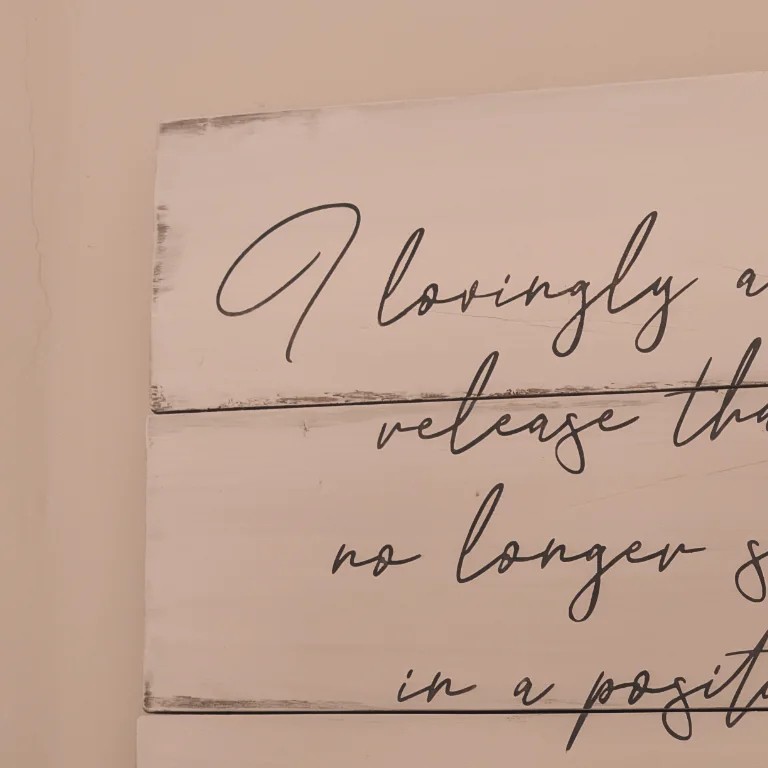 I lovingly a
release tha
no longer s
in a positi